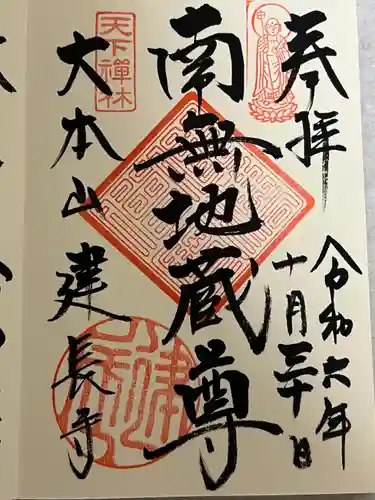 奉拝
令和六年
十月三十日
南無地蔵尊
天下禅林
大本山
建長寺